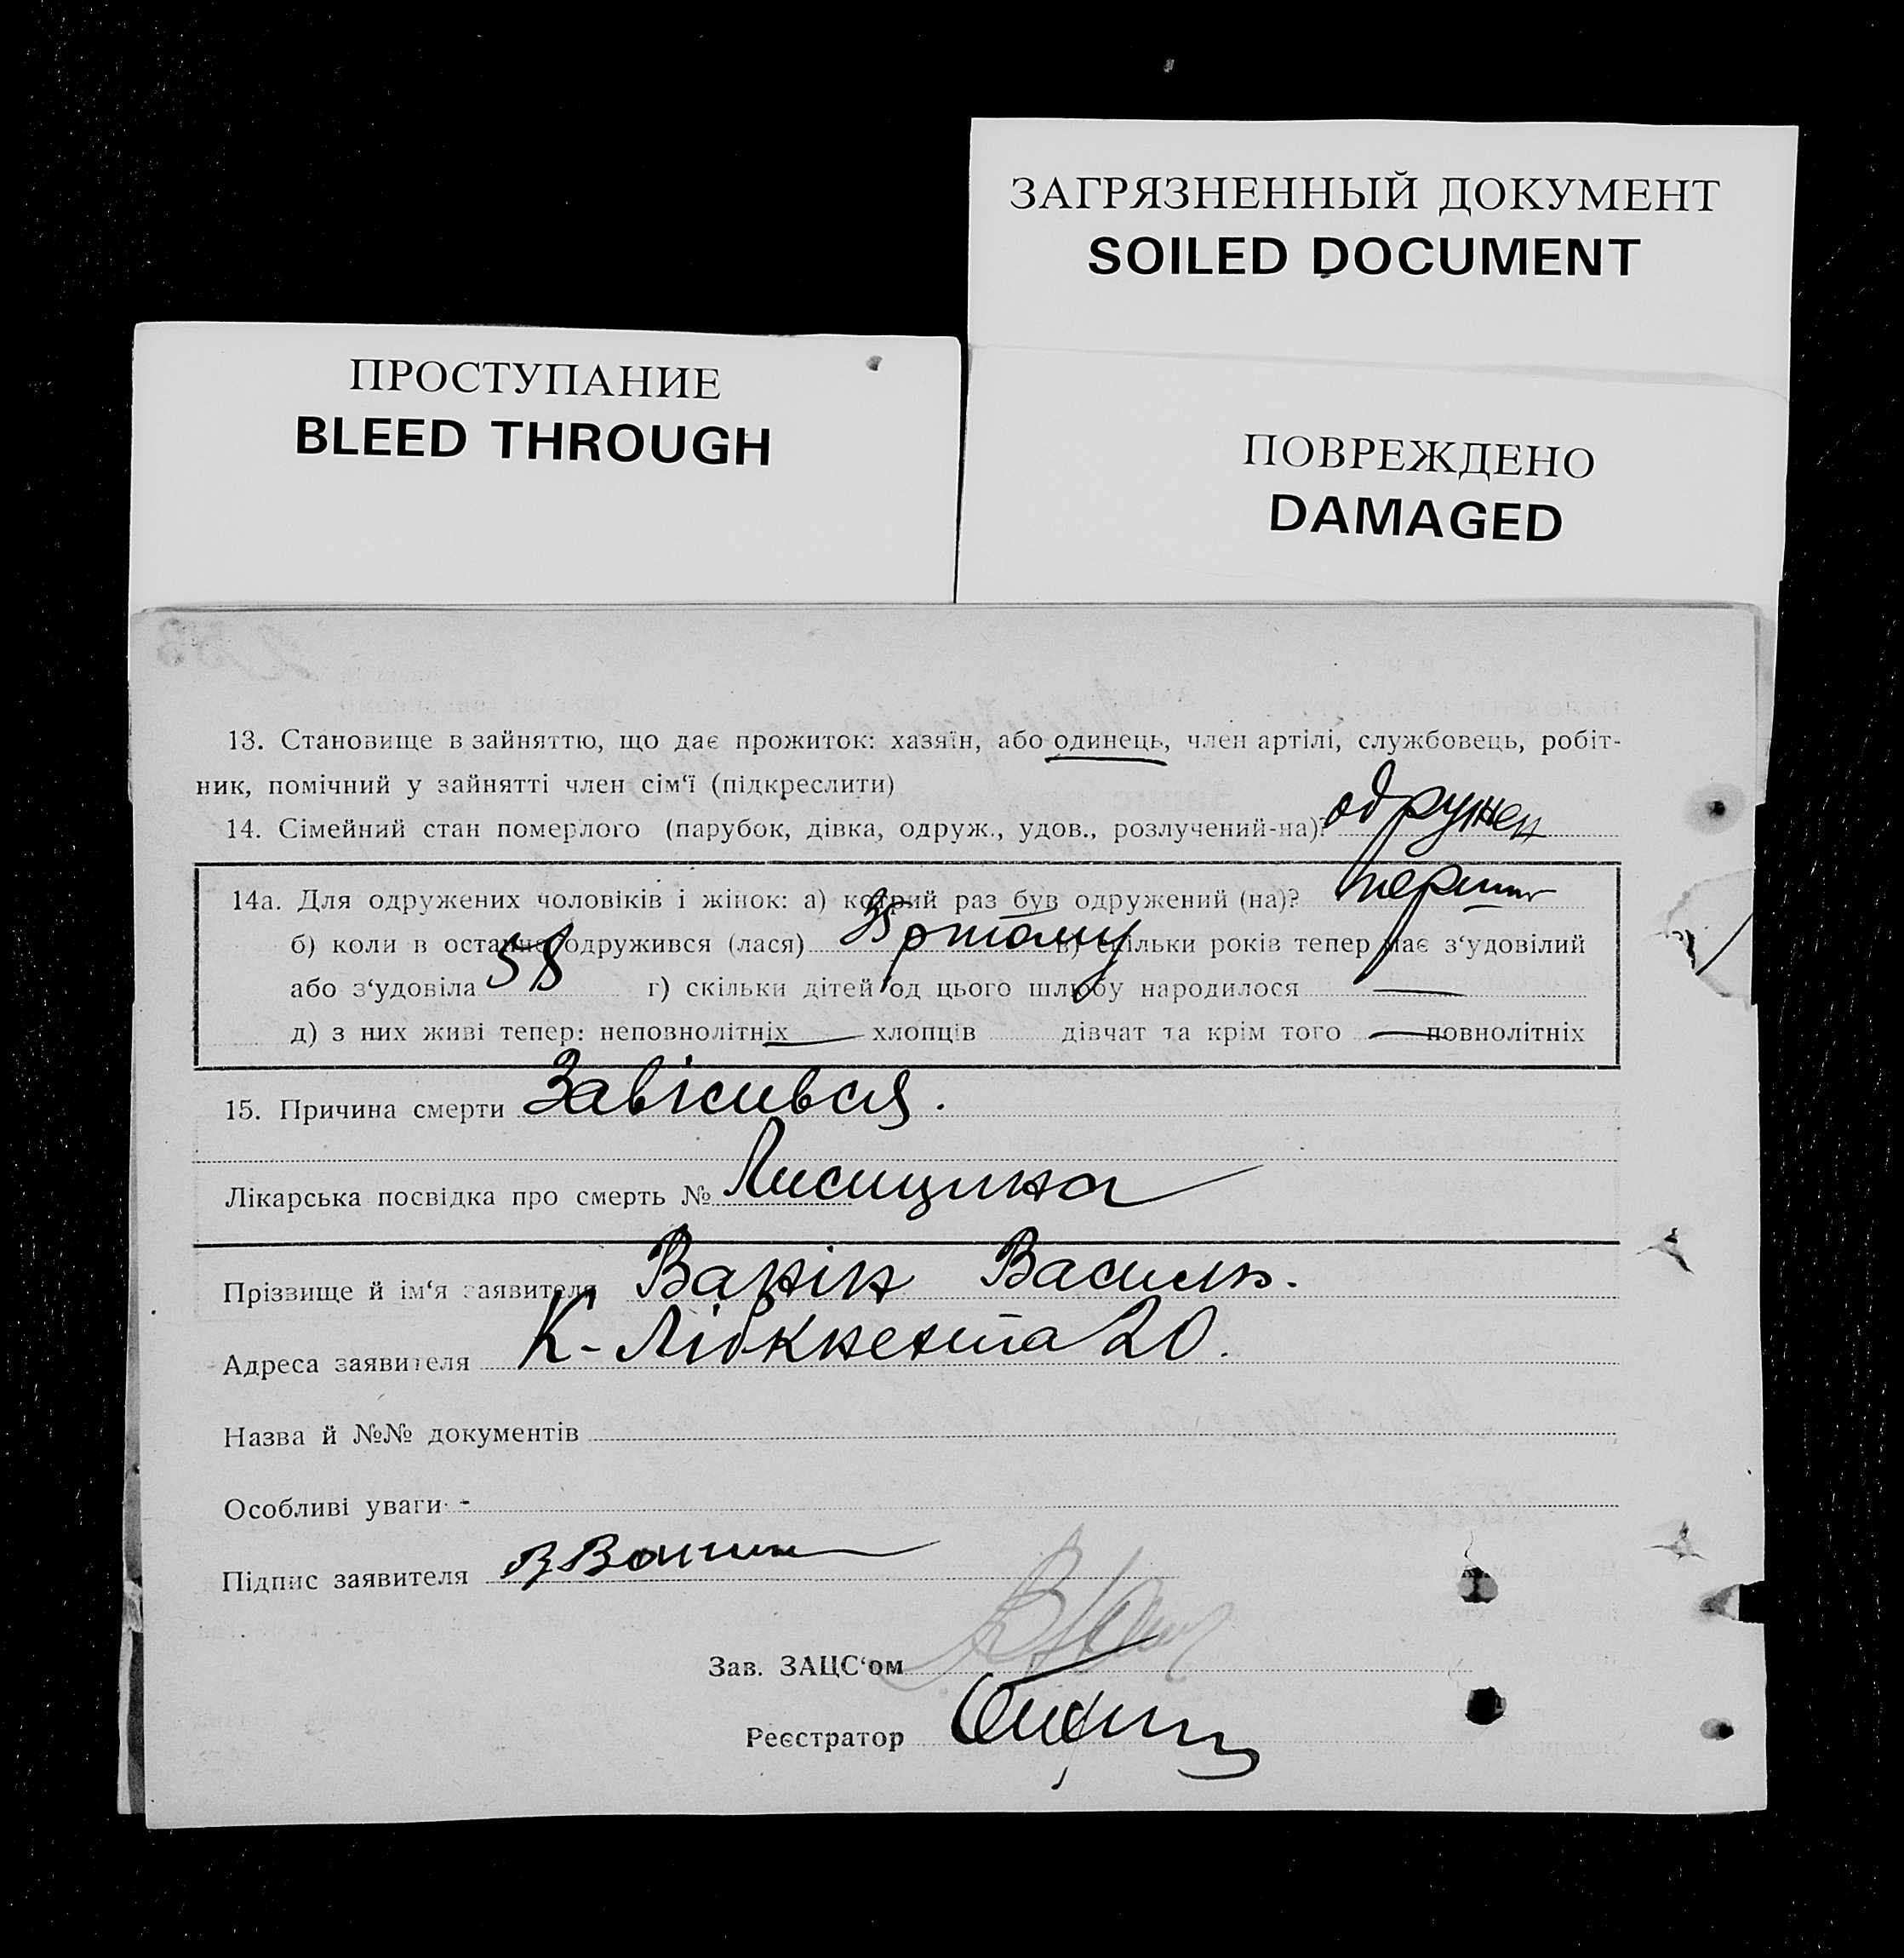 ЗАГРЯЗНЕННЫЙ ДОКУМЕНТ
SOILED DOCUMENT
ПРОСТУПАНИЕ
BLEED THROUGH
ПОВРЕЖДЕНО
DAMAGED
13. Становище в зайняттю, що дає прожиток: хазяїн, або одинець, член артілі, службовець, робіт-
ник, помічний у зайнятті член сім'ї (підкреслити)
14. Сімейний стан померлого (парубок, дівка, одруж., удов., розлучений-на)? одружен
14а. Для одружених чоловіків і жінок: а) котрий раз був одружений (на)?
б) коли в останнє одружився (лася) в) скільки років тепер має з'удовілий
або з'удовіла 58 г) скільки дітей од цього шлюбу народилося —
д) з них живі тепер: неповнолітніх — хлопців дівчат та крім того — повнолітніх
15. Причина смерти Завісився.
Лікарська посвідка про смерть №
Прізвище й ім'я заявителя Ванін Василь.
Адреса заявителя К-Лібкнехта 20.
Назва й №№ документів
Особливі уваги -
Підпис заявителя
Зав. ЗАЦС'ом
Реєстратор